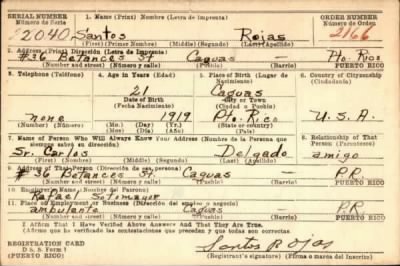 SERIAL NUMBER 1. Name (Print) Nombre (Letra de Imprenta) ORDER NUMBER
Número de Serie Número de Orden
2040 Santos Rojas 2166
(First) (Primer Nombre) (Middle) (Segundo) (Last) (Apellido)
2. Address (Print) Dirección (Letra de Imprenta)
#36 Betances St Caguas — Pto. Rico
(Number and street) (Número y calle) (Town) (Pueblo) (Barrio) PUERTO RICO
3. Telephone (Teléfono) 4. Age in Years (Edad) 5. Place of Birth (Lugar de Nacimiento) 6. Country of Citizenship (Ciudadanía)
21 Caguas
Date of Birth City or Town
(Fecha Nacimiento) (Ciudad o Pueblo)
none 1919 Pto. Rico U.S.A.
(Number) (Número) (Mo.) (Day) (Yr.) State or country)
(Mes) (Día) (Año) (Estado o país)
7. Name of Person Who Will Always Know Your Address (Nombre de la Persona que siempre sabrá su dirección) 8. Relationship of That Person (Parentesco)
Sr. Carlos Delgado amigo
(First) (Nombre) (Middle) (Segundo) (Last) (Apellido)
9. Address of That Person (Dirección de esa persona)
#36 Betances St. Caguas — P.R.
(Number and street) (Número y calle) (Town) (Pueblo) (Barrio) PUERTO RICO
10. Employer's Name (Nombre del Patrono)
Rafael Sotomayor
11. Place of Employment or Business (Dirección del empleo o negocio)
ambulante Caguas — P.R.
(Number and street) (Número y calle) (Town) (Pueblo) (Barrio) PUERTO RICO
I Affirm That I Have Verified Above Answers And That They Are True.
Afirmo que he verificado las contestaciones que preceden y que todas son correctas.
REGISTRATION CARD Santos Rojas
D. S. S. Form 1
(Registrant's signature) (Firma o marca del Inscrito)